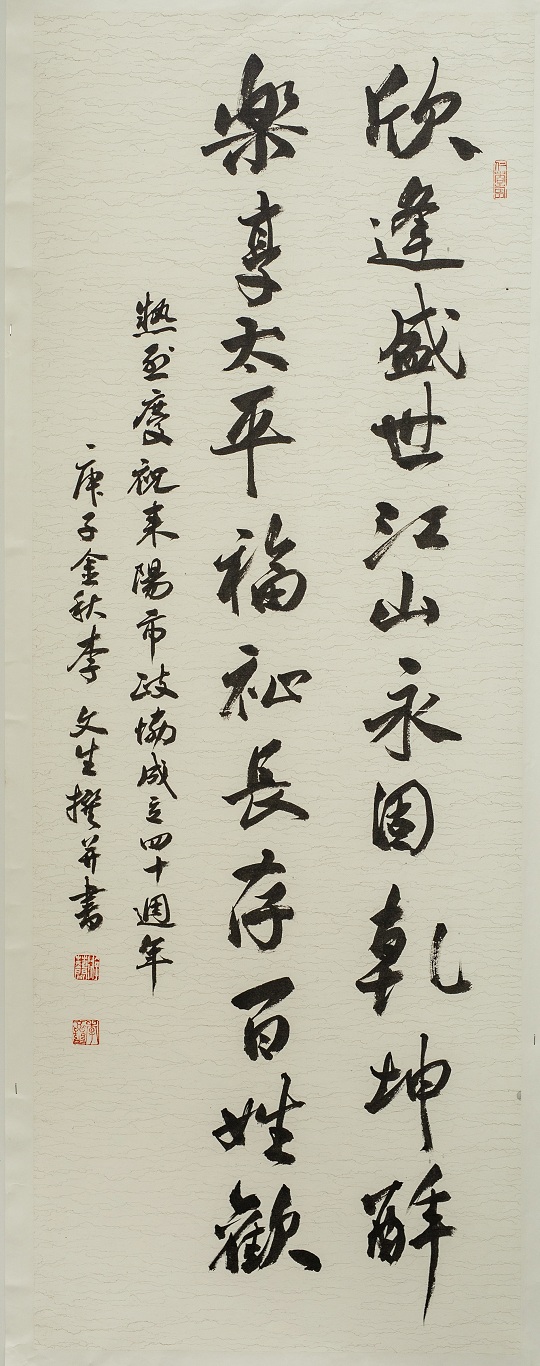 欣逢盛世江山永固乾坤醉
樂享太平福祉長存百姓歡
熱烈慶祝耒陽市政協成立四十週年
庚子金秋李文生撰并書